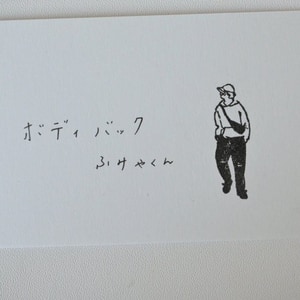 ボディバック
ふみやくん